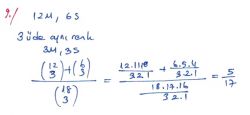 9./ 12M, 6S
3 üde aynı renk
3M, 3S
\frac{\binom{12}{3}+\binom{6}{3}}{\binom{18}{3}} = \frac{\frac{12.11.10}{3.2.1}+\frac{6.5.4}{3.2.1}}{\frac{18.17.16}{3.2.1}} = \frac{5}{17}